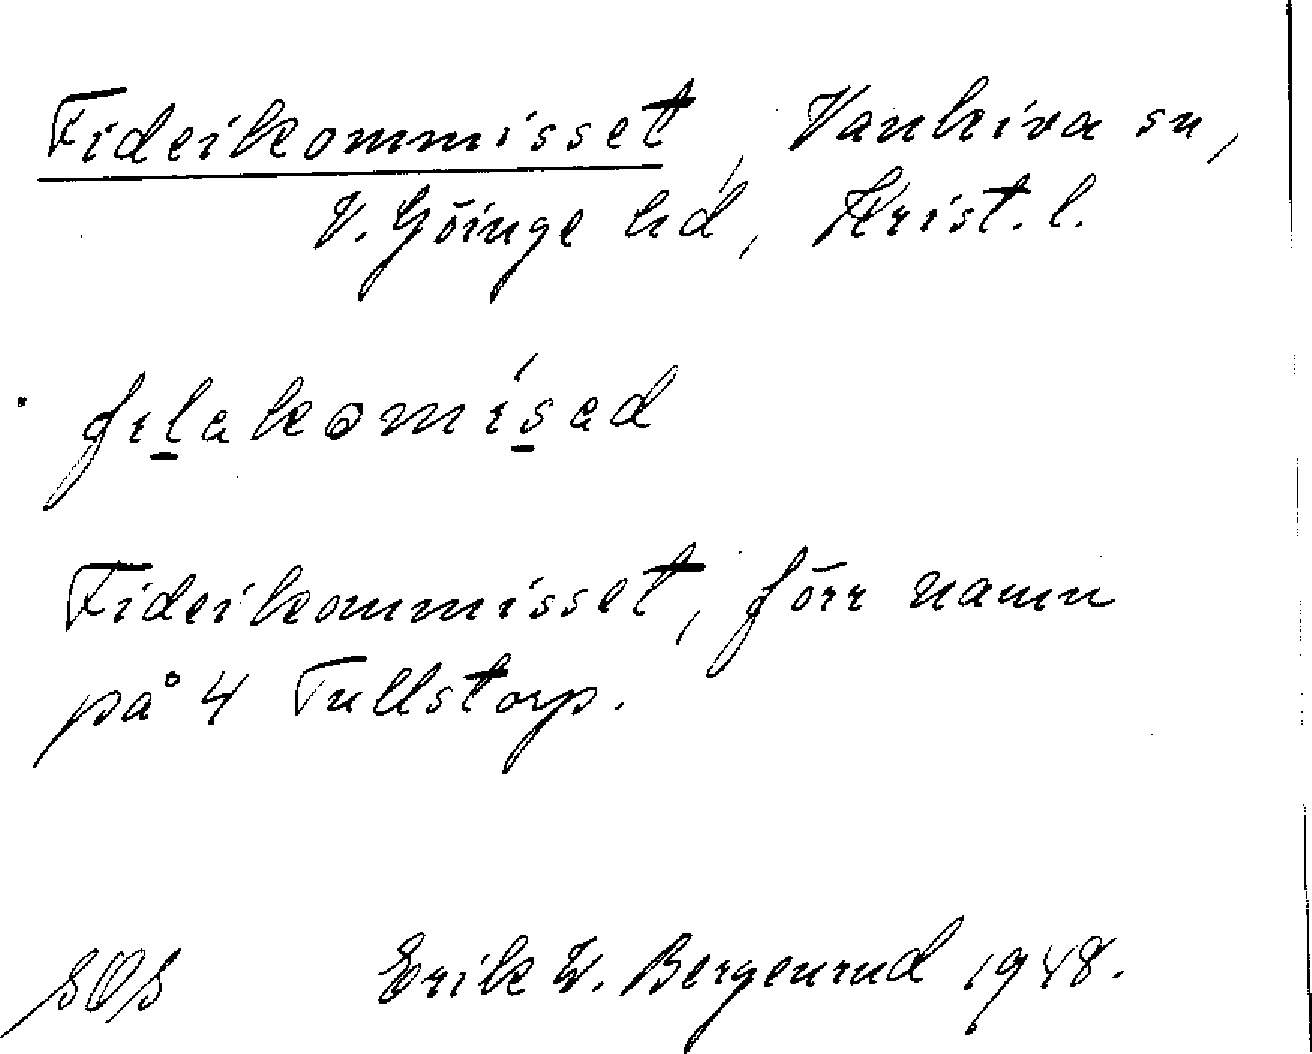 Fideikommisset, Vankiva sn,
V. Göinge hd, Krist. l.
filakomísad
Fideikommisset, förr namn
på 4 Tullstorp.
SOS Erik W. Bergenrud 1948.